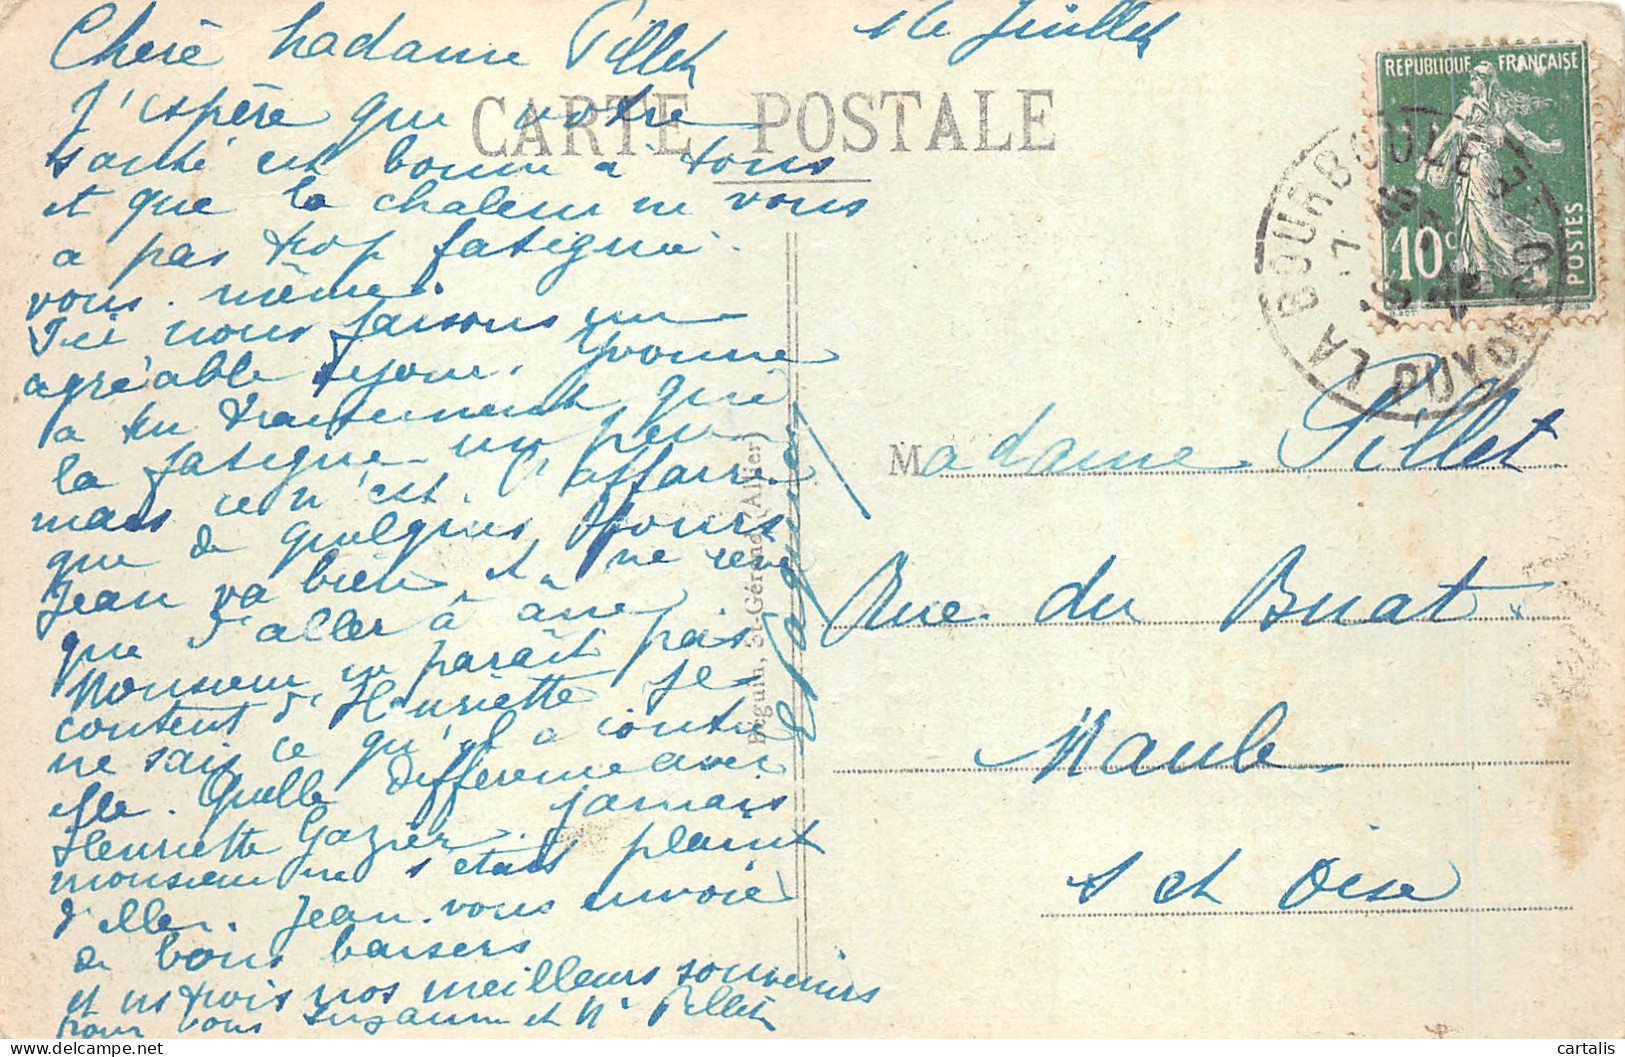 16 Juillet
Chère Madame Pillet
CARTE POSTALE
J'espère que votre
santé est bonne à tous
et que la chaleur ne vous
a pas trop fatigué
vous-même.
Ici nous faisons un
agréable séjour. Yvonne
a un traitement qui
la fatigue un peu
mais ce n'est l'affaire
que de quelques jours
Jean va bien et ne rêve
que d'aller à âne
Monsieur ne paraît pas
content d'Henriette je
ne sais ce qu'il a contre
elle. Quelle différence avec
Henriette Gazier jamais
monsieur ne s'étais plaint
d'elle. Jean vous envoie
de bons baisers
et ns trois nos meilleurs souvenirs
pour vous Suzanne et Mr Pillet
Béguin, St-Gérand (Allier)
REPUBLIQUE FRANÇAISE
10c
POSTES
LA BOURBOULE
PUY DE DO
Madame Pillet
Rue du Buat
Maule
S et Oise
cartalis